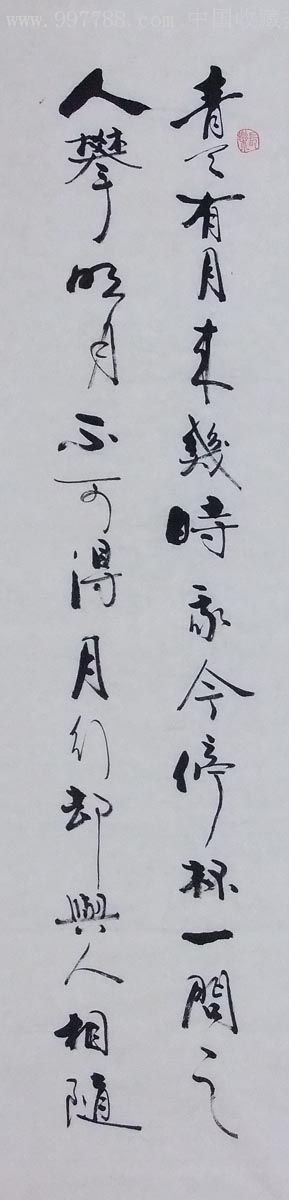 www.997788.com 中国收藏
青天有月来幾時我今停杯一問之
人攀明月不可得月行却與人相隨